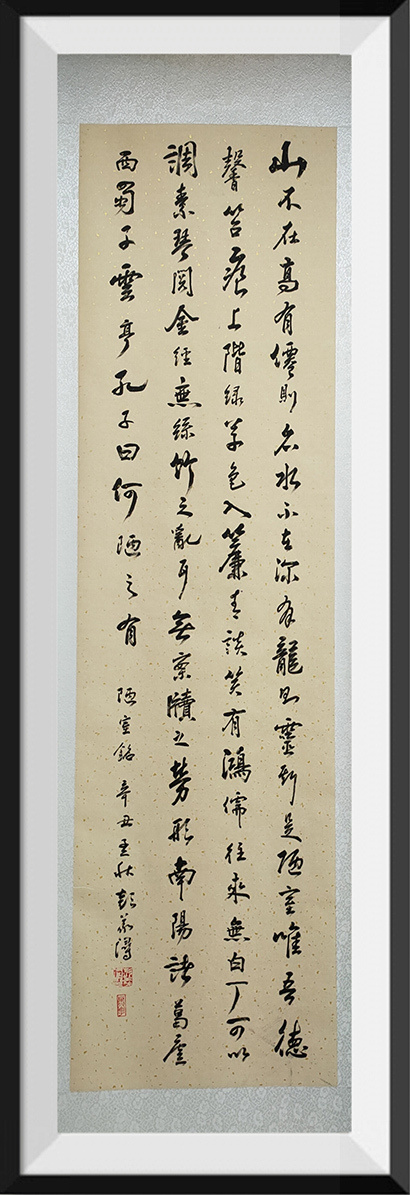 山不在高有僊則名水不在深有龍則靈斯是陋室唯吾德
馨苔痕上階緑草色入簾青談笑有鴻儒往來無白丁可以
調素琴閱金經無絲竹之亂耳無案牘之勞形南陽諸葛廬
西蜀子雲亭孔子曰何陋之有 陋室銘 辛丑孟秋彭